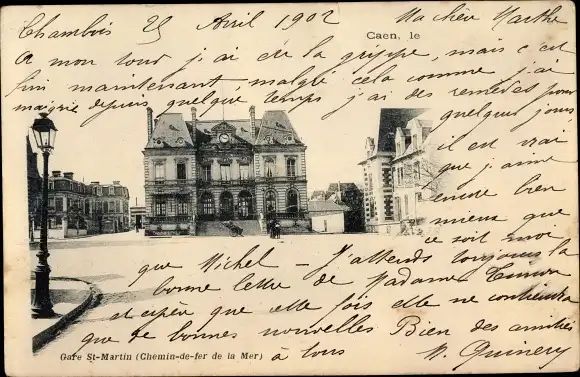 Chambois 25 Avril 1902 Ma chère Marthe
Caen, le
A mon tour j'ai eu la grippe, mais c'est
fini maintenant, malgré cela comme j'ai
maigrie depuis quelque temps j'ai des remèdes pour
quelques jours
il est vrai
que j'aime
encore bien
mieux que
ce soit moi
que Michel — J'attends toujours la
bonne lettre de Madame
et espère que cette fois elle ne contiendra
que de bonnes nouvelles Bien des amitiés
à tous M. Quinery
Gare St-Martin (Chemin-de-fer de la Mer)